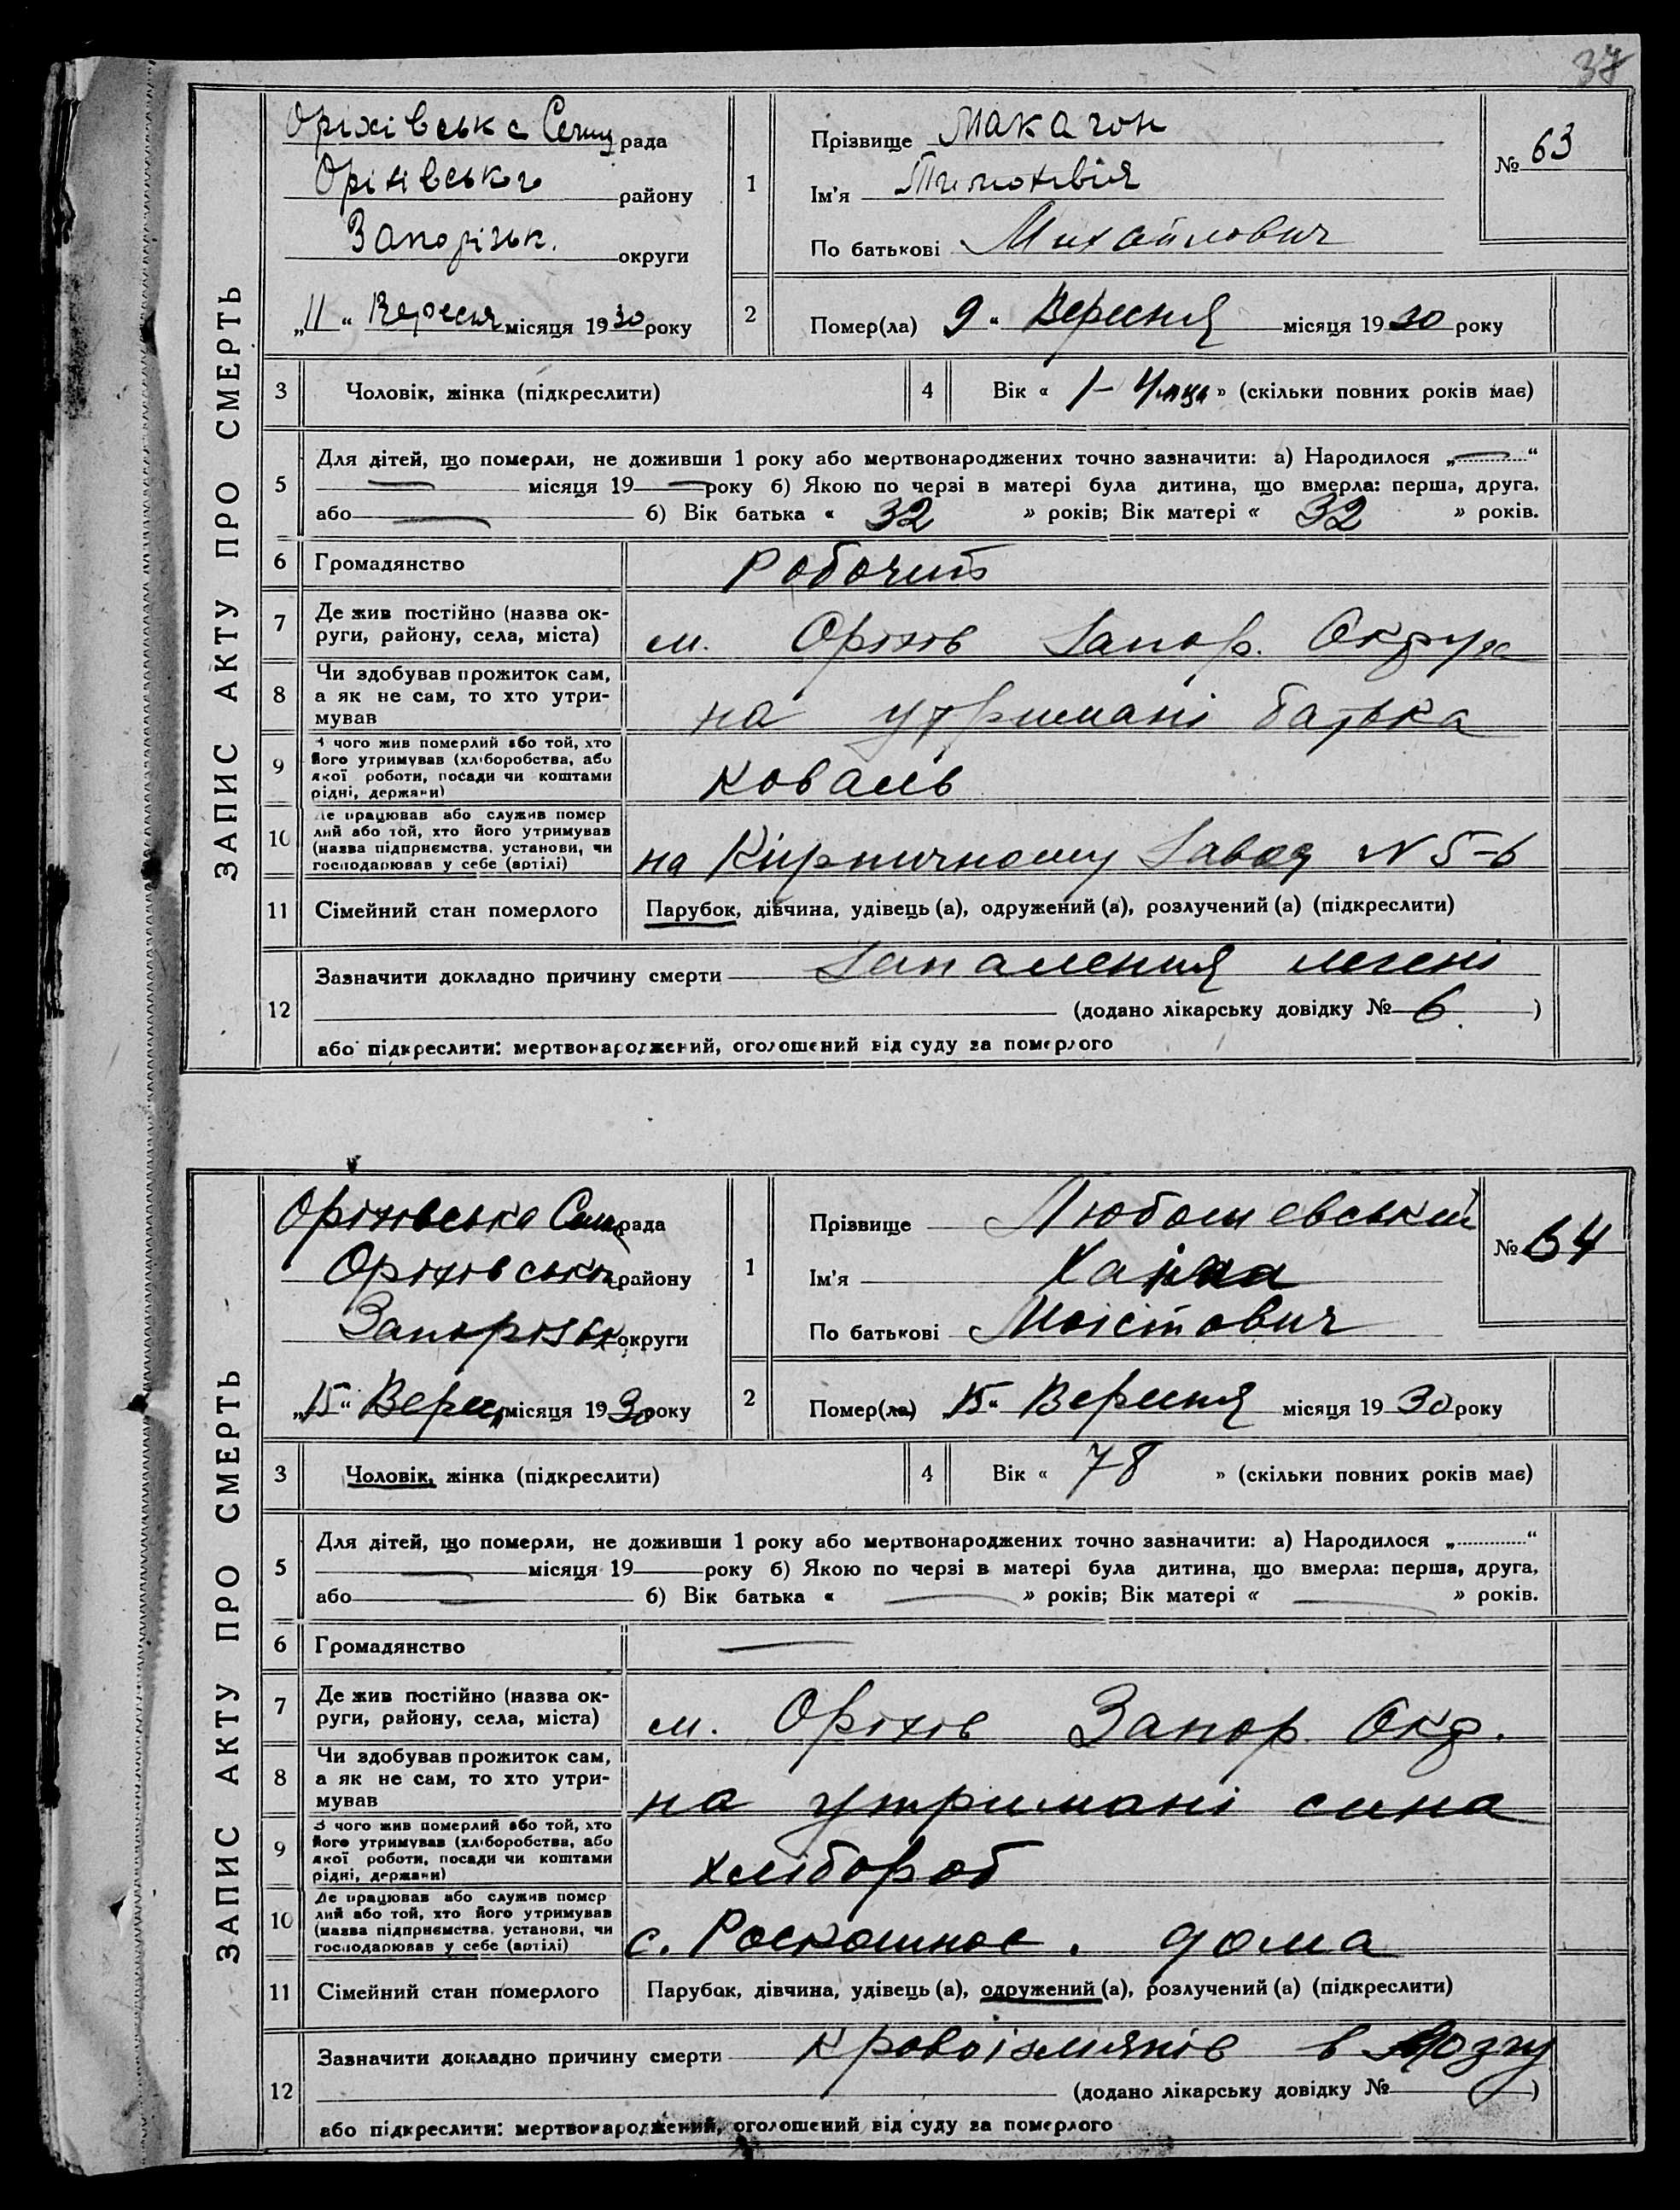 37
ЗАПИС АКТУ ПРО СМЕРТЬ
Оріхівська рада
Оріхівського району
Запорізьк. округи
„11“ Вересня місяця 1930 року
1
Прізвище Макагон
Ім'я
По батькові Михайлович
№ 63
2
Помер(ла) 9 “ Вересня місяця 1930 року
3 Чоловік, жінка (підкреслити)
4 Вік « 1 – 4 » (скільки повних років має)
5
Для дітей, що померли, не доживши 1 року або мертвонароджених точно зазначити: а) Народилося „—“
— місяця 19— року б) Якою по черзі в матері була дитина, що вмерла: перша, друга,
або — б) Вік батька « 32 » років; Вік матері « 32 » років.
6 Громадянство Робочий
7 Де жив постійно (назва ок-
руги, району, села, міста)
м. Оріхів Запор. Округи
8 Чи здобував прожиток сам,
а як не сам, то хто утри-
мував
на утримані батька
9 З чого жив померлий або той, хто
його утримував (хліборобства, або
якої роботи, посади чи коштами
рідні, держави)
коваль
10 Де працював або служив помер
лий або той, хто його утримував
(назва підприємства, установи, чи
господарював у себе (артілі)
на Кирпичному Завод N 5-6
11 Сімейний стан померлого Парубок, дівчина, удівець (а), одружений (а), розлучений (а) (підкреслити)
12 Зазначити докладно причину смерти Запалення легені
(додано лікарську довідку № 6 )
або підкреслити: мертвонароджений, оголошений від суду за померлого
ЗАПИС АКТУ ПРО СМЕРТЬ
Оріхівська рада
Оріхівськ району
Запорізьк округи
„15“ Верес місяця 1930 року
1
Прізвище Любошевський
Ім'я
По батькові Моісейович
№ 64
2
Помер(ла) „15“ Вересня місяця 1930 року
3 Чоловік, жінка (підкреслити)
4 Вік « 78 » (скільки повних років має)
5
Для дітей, що померли, не доживши 1 року або мертвонароджених точно зазначити: а) Народилося „.............“
— місяця 19 року б) Якою по черзі в матері була дитина, що вмерла: перша, друга,
або — б) Вік батька « — » років; Вік матері « — » років.
6 Громадянство —
7 Де жив постійно (назва ок-
руги, району, села, міста)
м. Оріхів Запор. Окр.
8 Чи здобував прожиток сам,
а як не сам, то хто утри-
мував
на утримані сина
9 З чого жив померлий або той, хто
його утримував (хліборобства, або
якої роботи, посади чи коштами
рідні, держави)
хлібороб
10 Де працював або служив помер
лий або той, хто його утримував
(назва підприємства, установи, чи
господарював у себе (артілі)
с. Роскошное. дома
11 Сімейний стан померлого Парубок, дівчина, удівець (а), одружений (а), розлучений (а) (підкреслити)
12 Зазначити докладно причину смерти в мозгу
(додано лікарську довідку № )
або підкреслити: мертвонароджений, оголошений від суду за померлого